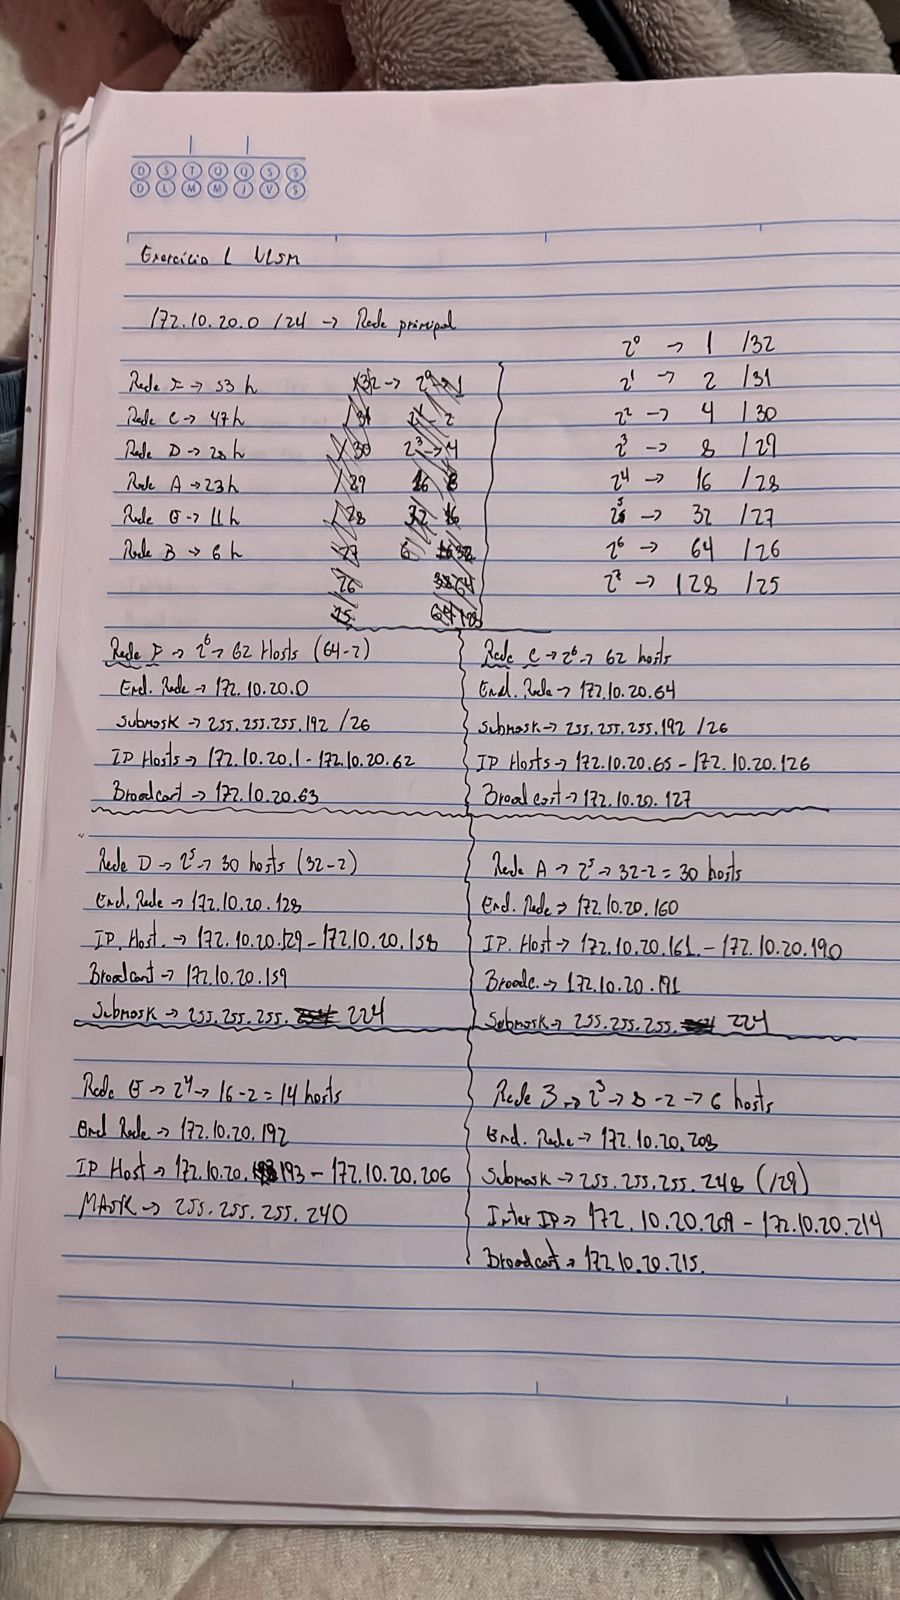 D S T Q Q S S
D L M M J V S
Exercício 1 VLSM
172.10.20.0 /24 → Rede principal
Rede F → 53 h
Rede C → 47 h
Rede D → 28 h
Rede A → 23 h
Rede E → 11 h
Rede B → 6 h
2⁰ → 1 /32
2¹ → 2 /31
2² → 4 /30
2³ → 8 /29
2⁴ → 16 /28
2⁵ → 32 /27
2⁶ → 64 /26
2⁷ → 128 /25
Rede F → 2⁶ → 62 Hosts (64-2)
End. Rede → 172.10.20.0
Submask → 255.255.255.192 /26
IP Hosts → 172.10.20.1 - 172.10.20.62
Broadcast → 172.10.20.63
Rede C → 2⁶ → 62 hosts
End. Rede → 172.10.20.64
Submask → 255.255.255.192 /26
IP Hosts → 172.10.20.65 - 172.10.20.126
Broadcast → 172.10.20.127
Rede D → 2⁵ → 30 hosts (32-2)
End. Rede → 172.10.20.128
IP. Host. → 172.10.20.129 - 172.10.20.158
Broadcast → 172.10.20.159
Submask → 255.255.255. 224
Rede A → 2⁵ → 32-2 = 30 hosts
End. Rede → 172.10.20.160
IP. Host → 172.10.20.161. - 172.10.20.190
Broadc. → 172.10.20.191
Submask → 255.255.255. 224
Rede E → 2⁴ → 16-2 = 14 hosts
End Rede → 172.10.20.192
IP Host → 172.10.20.193 - 172.10.20.206
MASK → 255.255.255.240
Rede B → 2³ → 8-2 → 6 hosts
End. Rede → 172.10.20.208
Submask → 255.255.255.248 (/29)
Inter IP → 172.10.20.209 - 172.10.20.214
Broadcast → 172.10.20.215.